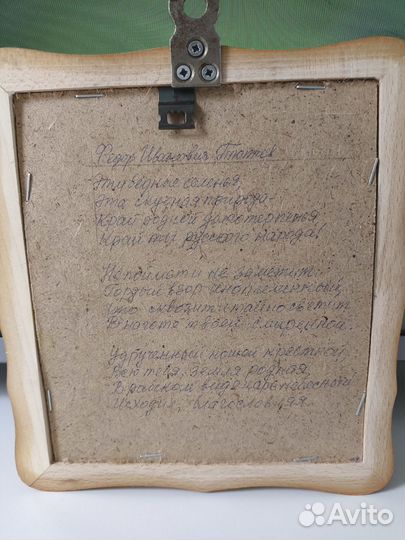 Федор Иванович Тютчев
Эти бедные селенья,
Эта скудная природа-
Край родной долготерпенья
Край ты русского народа!
Не поймёт и не заметит
Гордый взор иноплеменный,
Что сквозит и тайно светит
В наготе твоей смиренной.
Удрученный ношей крестной,
Всю тебя, земля родная,
В рабском виде царь небесный
Исходил, благословляя.
Avito